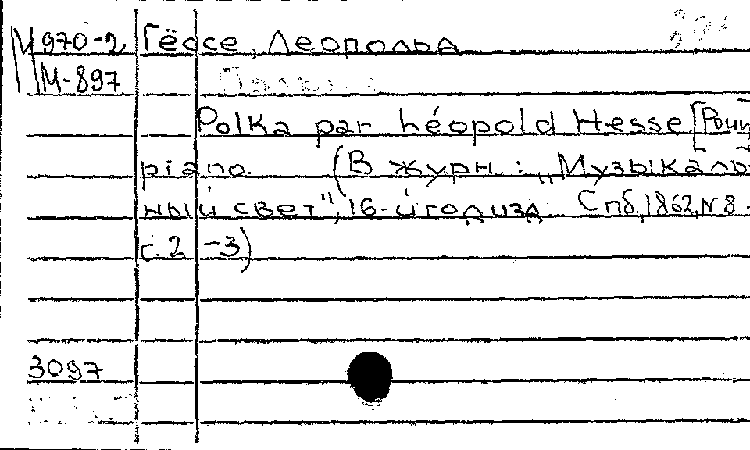 М 970-2 Гёссе, Леопольд
М-897
Polka par Léopold Hesse [Pour
piano. (В журн.: „Музыкаль-
ный свет", 16-й год изд. Спб, 1862, N 8.
с. 2-3)
3097